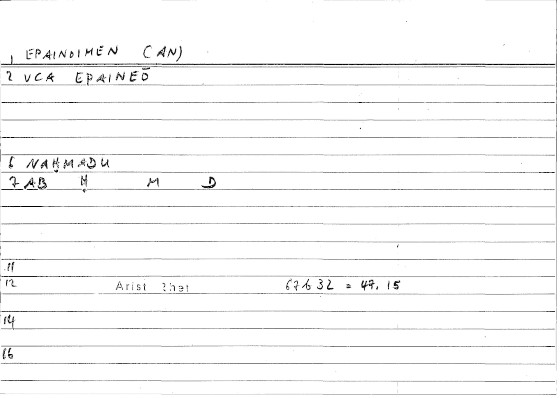 1 EPAINOIMEN (AN)
2 VCA EPAINEŌ
6 NAḤMADU
7 AB Ḥ M D
11
12 Arist Rhet 67632 = 47.15
14
16